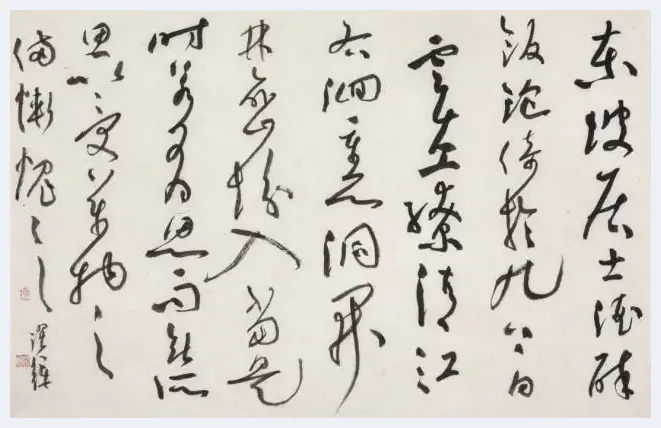 東坡居士酒醉
飯飽倚於几上白
雲左繚清江
右洄重門洞開
林巒坌入當是
時若有思而無所
思以受萬物之
備慚愧〻〻